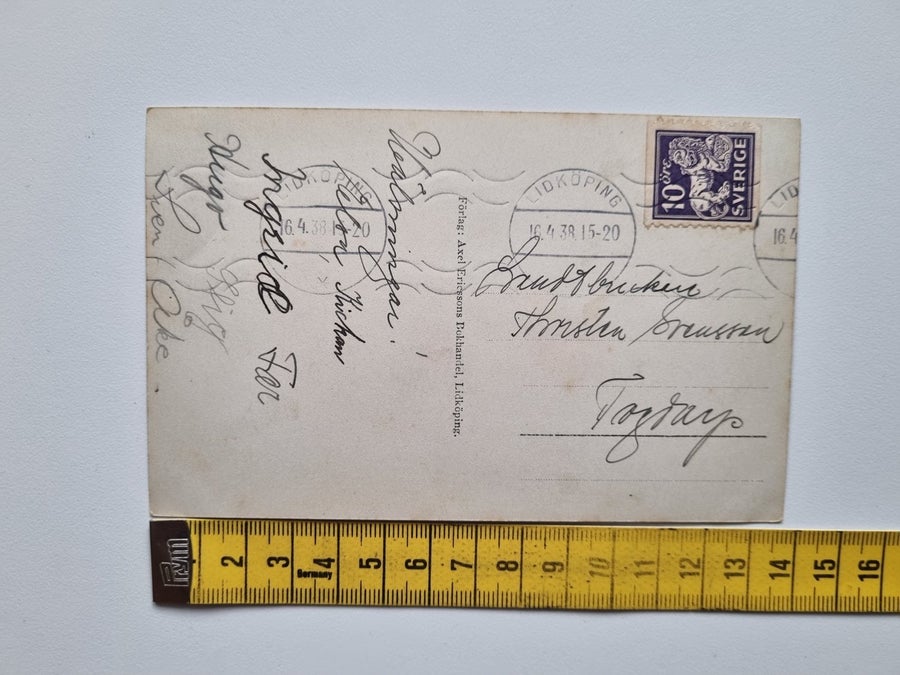 Välkomnar!
Ingrid
Hugo Stig
Sven Åke.
LIDKÖPING
16.4.38.15-20
Förlag: Axel Ericssons Bokhandel, Lidköping.
LIDKÖPING
16.4.38.15-20
10 öre
SVERIGE
LID
16.4
Brandtbacken
Thorsten Svensson
Togdarp
Prym
2 3 4 5 6 7 8 9 10 11 12 13 14 15 16
Germany